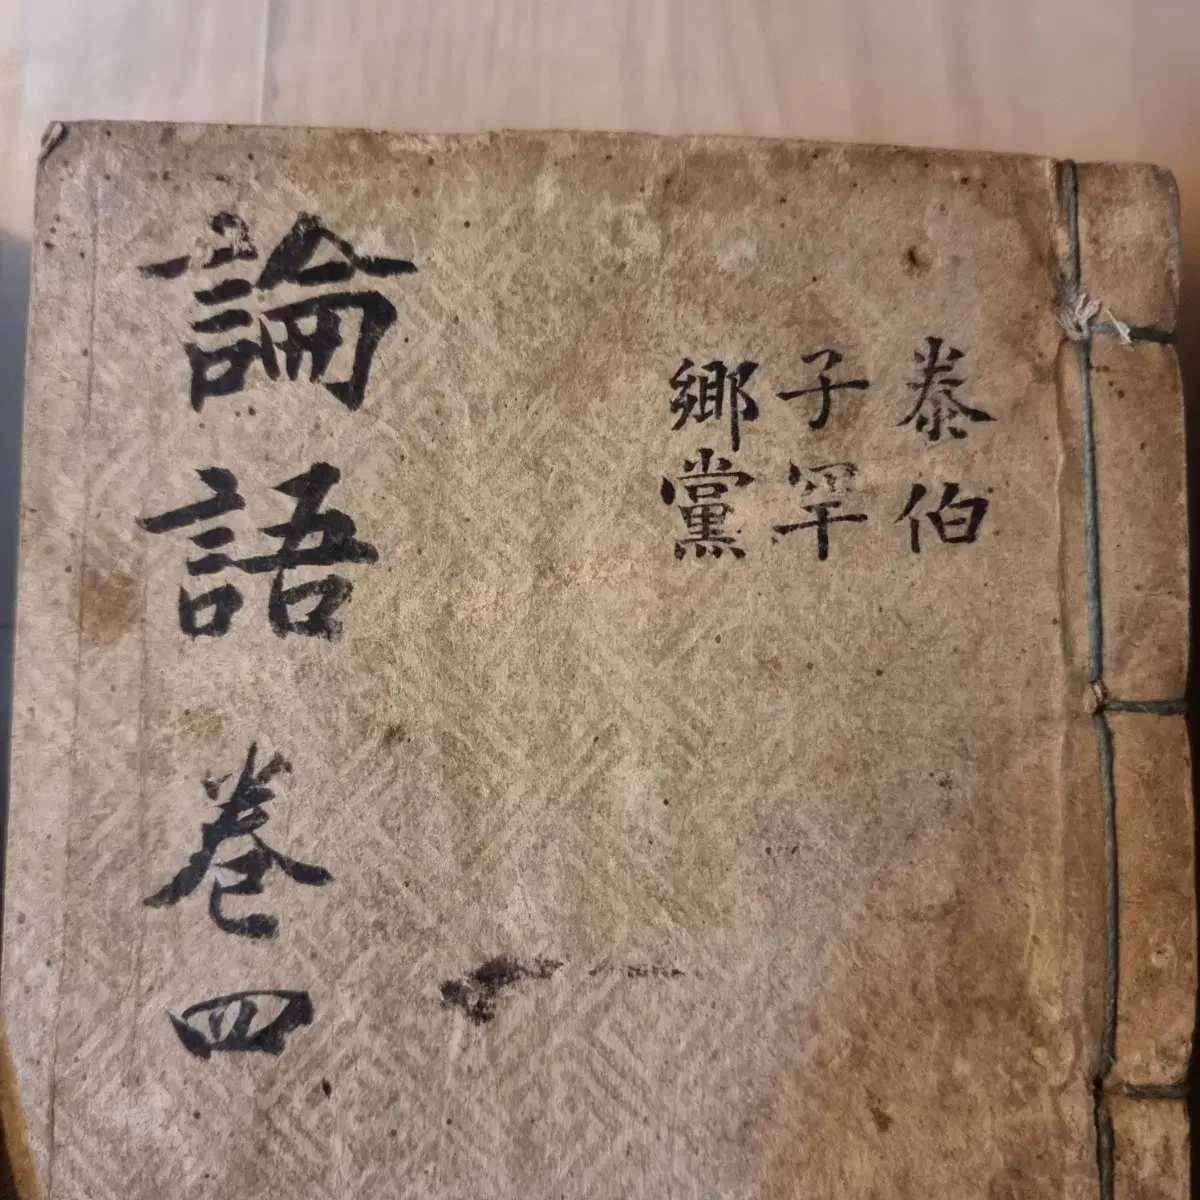 泰伯
子罕
鄉黨
論語 卷四